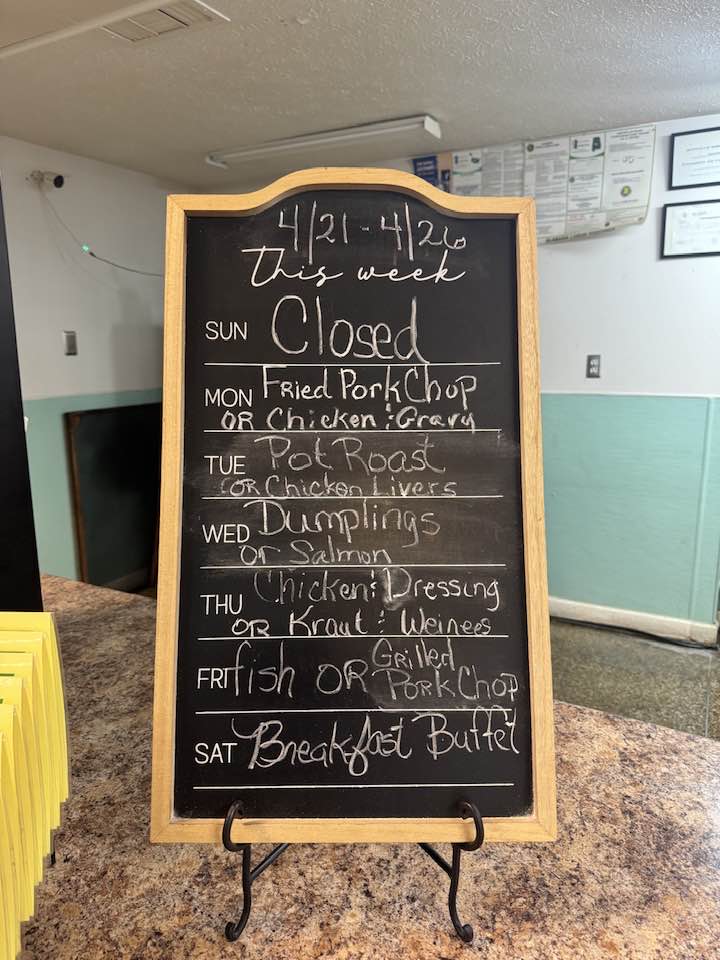 4/21 - 4/26
This week
SUN Closed
MON Fried Pork Chop
OR Chicken & Gravy
TUE Pot Roast
OR Chicken Livers
WED Dumplings
or Salmon
THU Chicken & Dressing
OR Kraut & Weinees
FRI fish OR Grilled
Pork Chop
SAT Breakfast Buffet